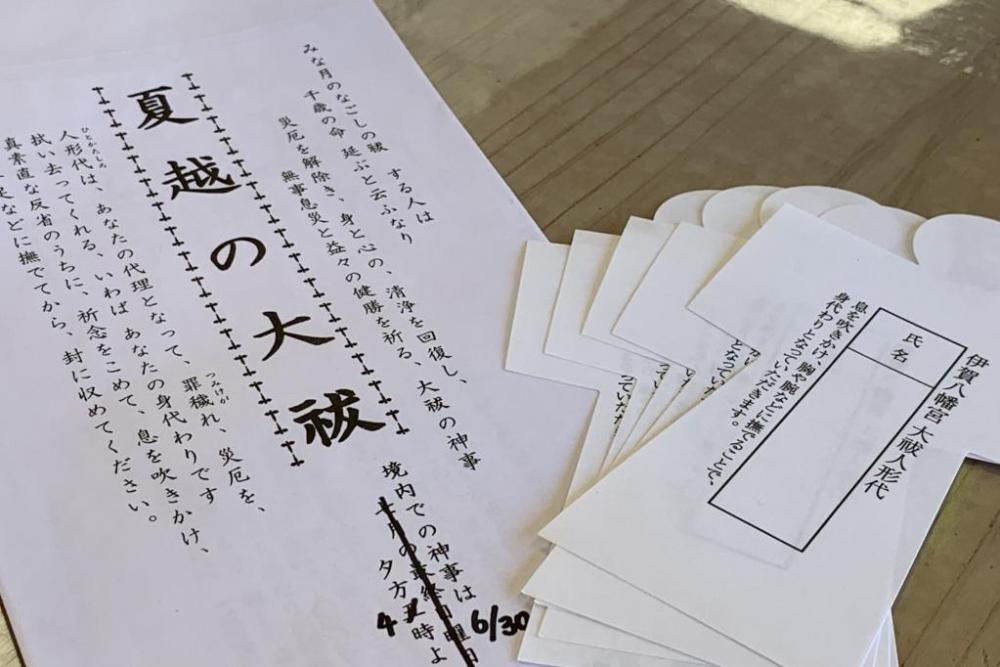 みな月のなごしの祓 する人は
千歳の命 延ぶと云ふなり
災厄を解除き、身と心の、清浄を回復し、
無事息災と益々の健勝を祈る、大祓の神事
夏越の大祓
人形代は、あなたの代理となって、罪穢れ、災厄を、
ひとかたしろ
つみけが
拭い去ってくれる、いわば あなたの身代わりです
真素直な反省のうちに、祈念をこめて、息を吹きかけ、
などに撫でてから、封に収めてください。
境内での神事は
月の最終日曜日
夕方 時よ
4
6/30
伊賀八幡宮 大祓人形代
氏名
息を吹きかけ、胸や腕などに撫でることで、
身代わりとなっていただきます。